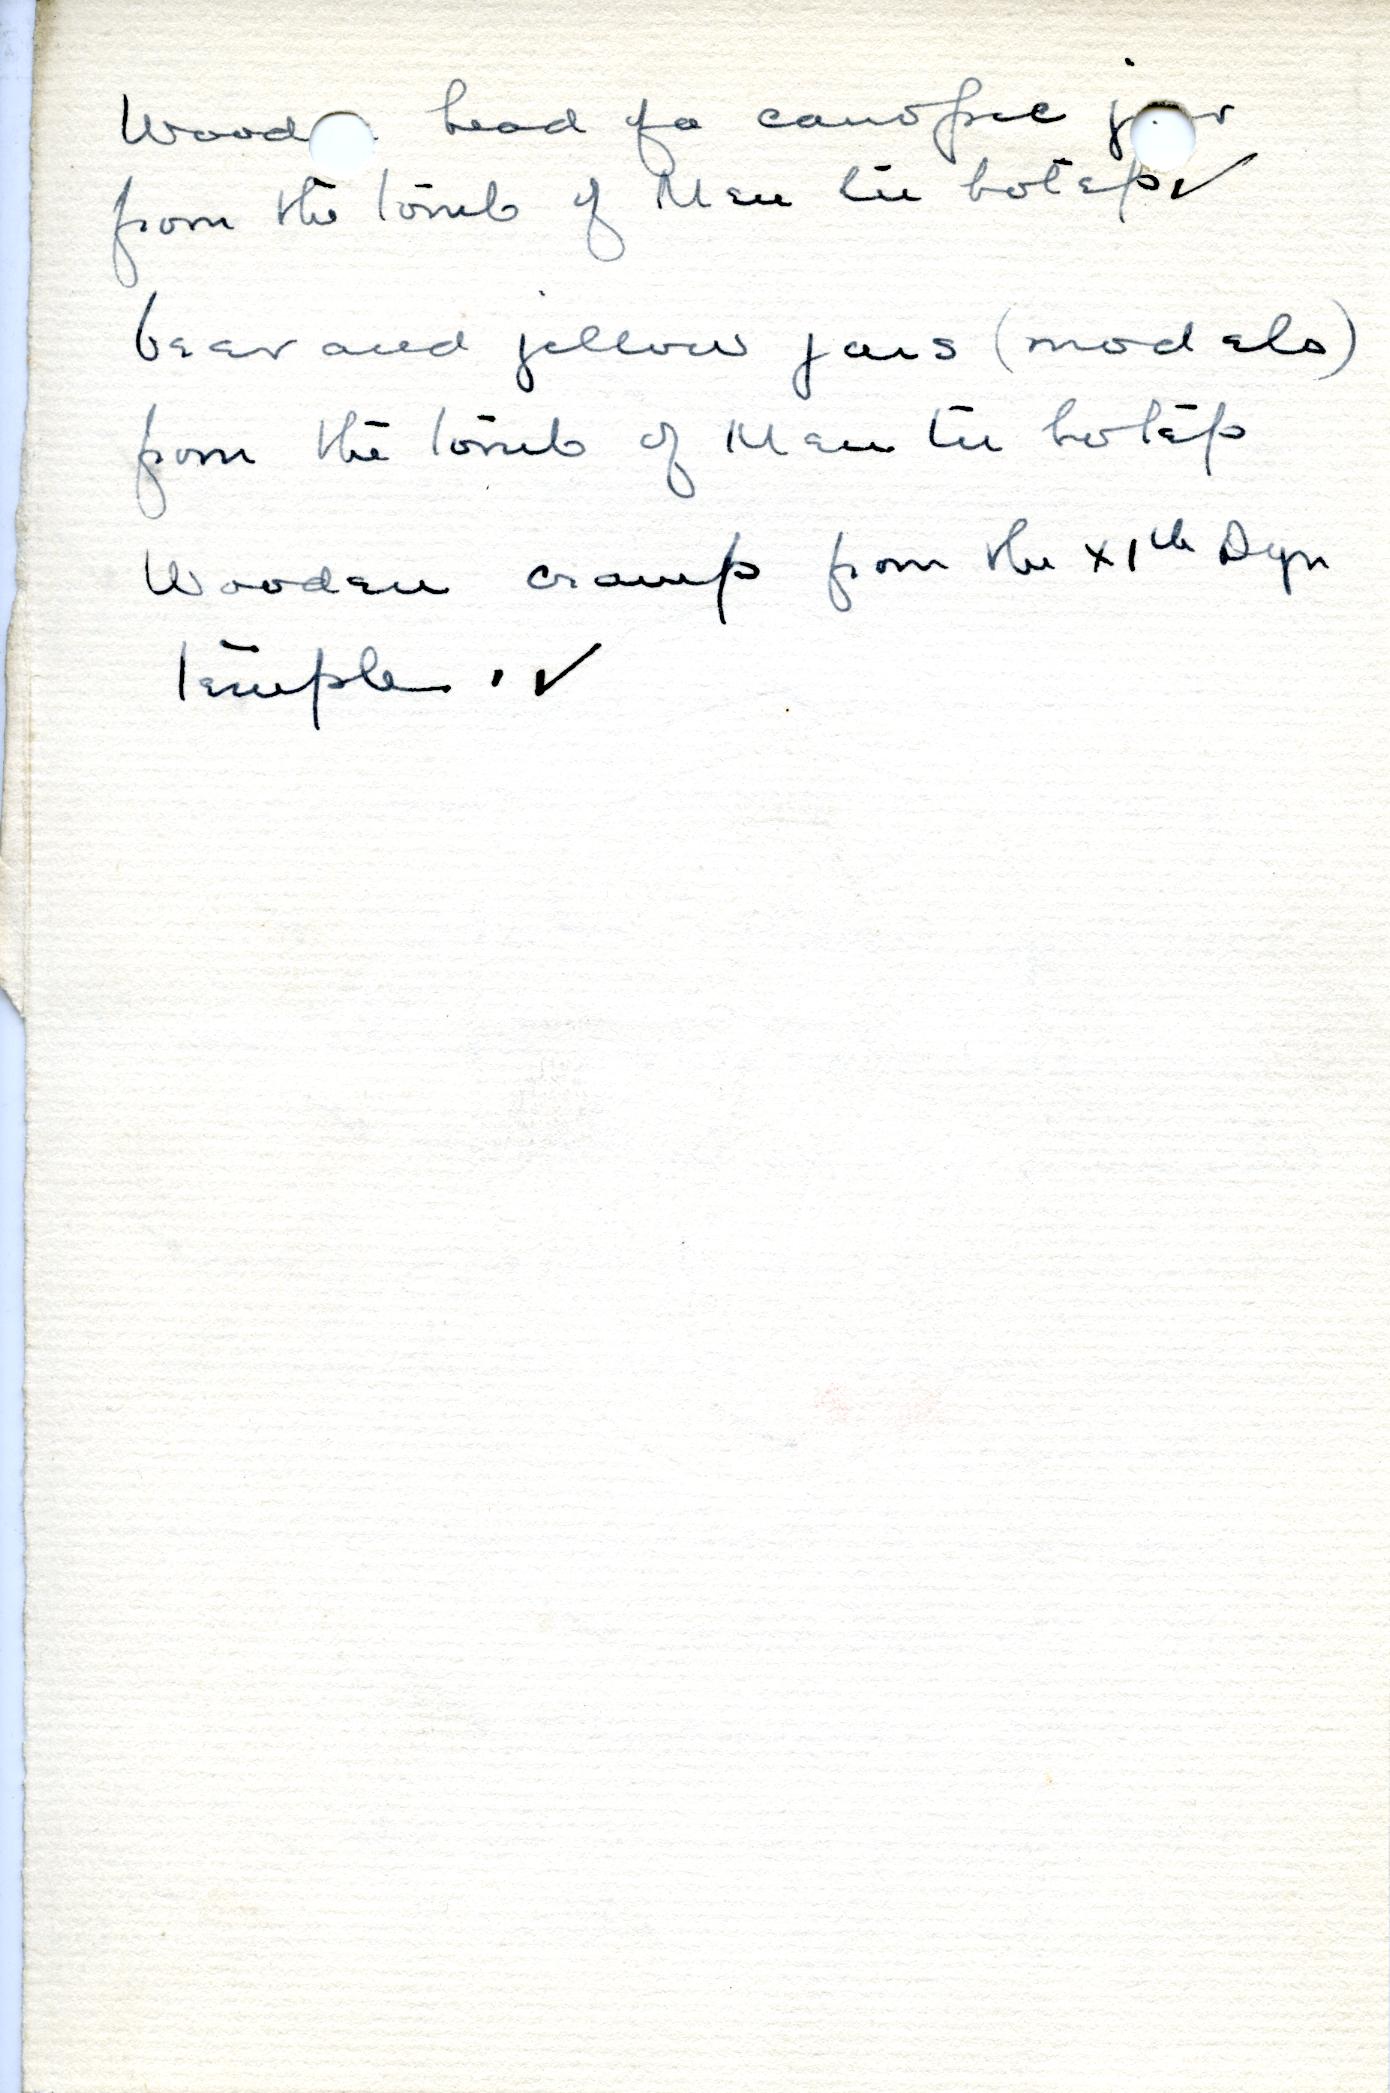 Wood head of a canopic jar
from the tomb of Men tu hotep ✓
beer and yellow jars (models)
from the tomb of Men tu hotep
Wooden cramp from the XIth Dyn
temple . ✓